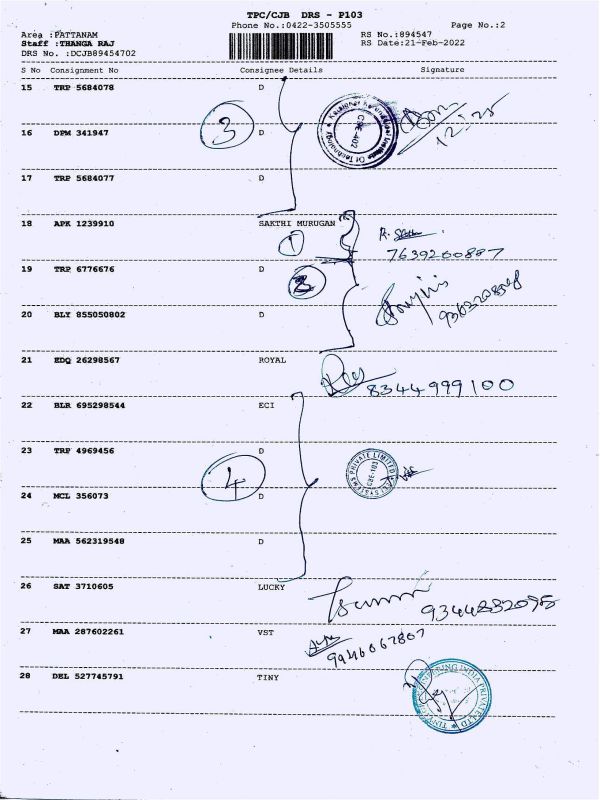 TPC/CJB DRS - P103
Phone No.:0422-3505555
Page No.:2
Area :PATTANAM
RS No.:894547
Staff :THANGA RAJ
RS Date:21-Feb-2022
DRS No. :DCJB89454702
S No Consignment No Consignee Details Signature
15 TRP 5684078 D
3
12:25
16 DPM 341947 D
17 TRP 5684077 D
18 APK 1239910 SAKTHI MURUGAN
1
7639200887
19 TRP 6776676 D
2
20 BLY 855050802 D
21 EDQ 26298567 ROYAL
8344999100
22 BLR 695298544 ECI
23 TRP 4969456 D
4
24 MCL 356073 D
25 MAA 562319548 D
26 SAT 3710605 LUCKY
9344832098
27 MAA 287602261 VST
9946067807
28 DEL 527745791 TINY